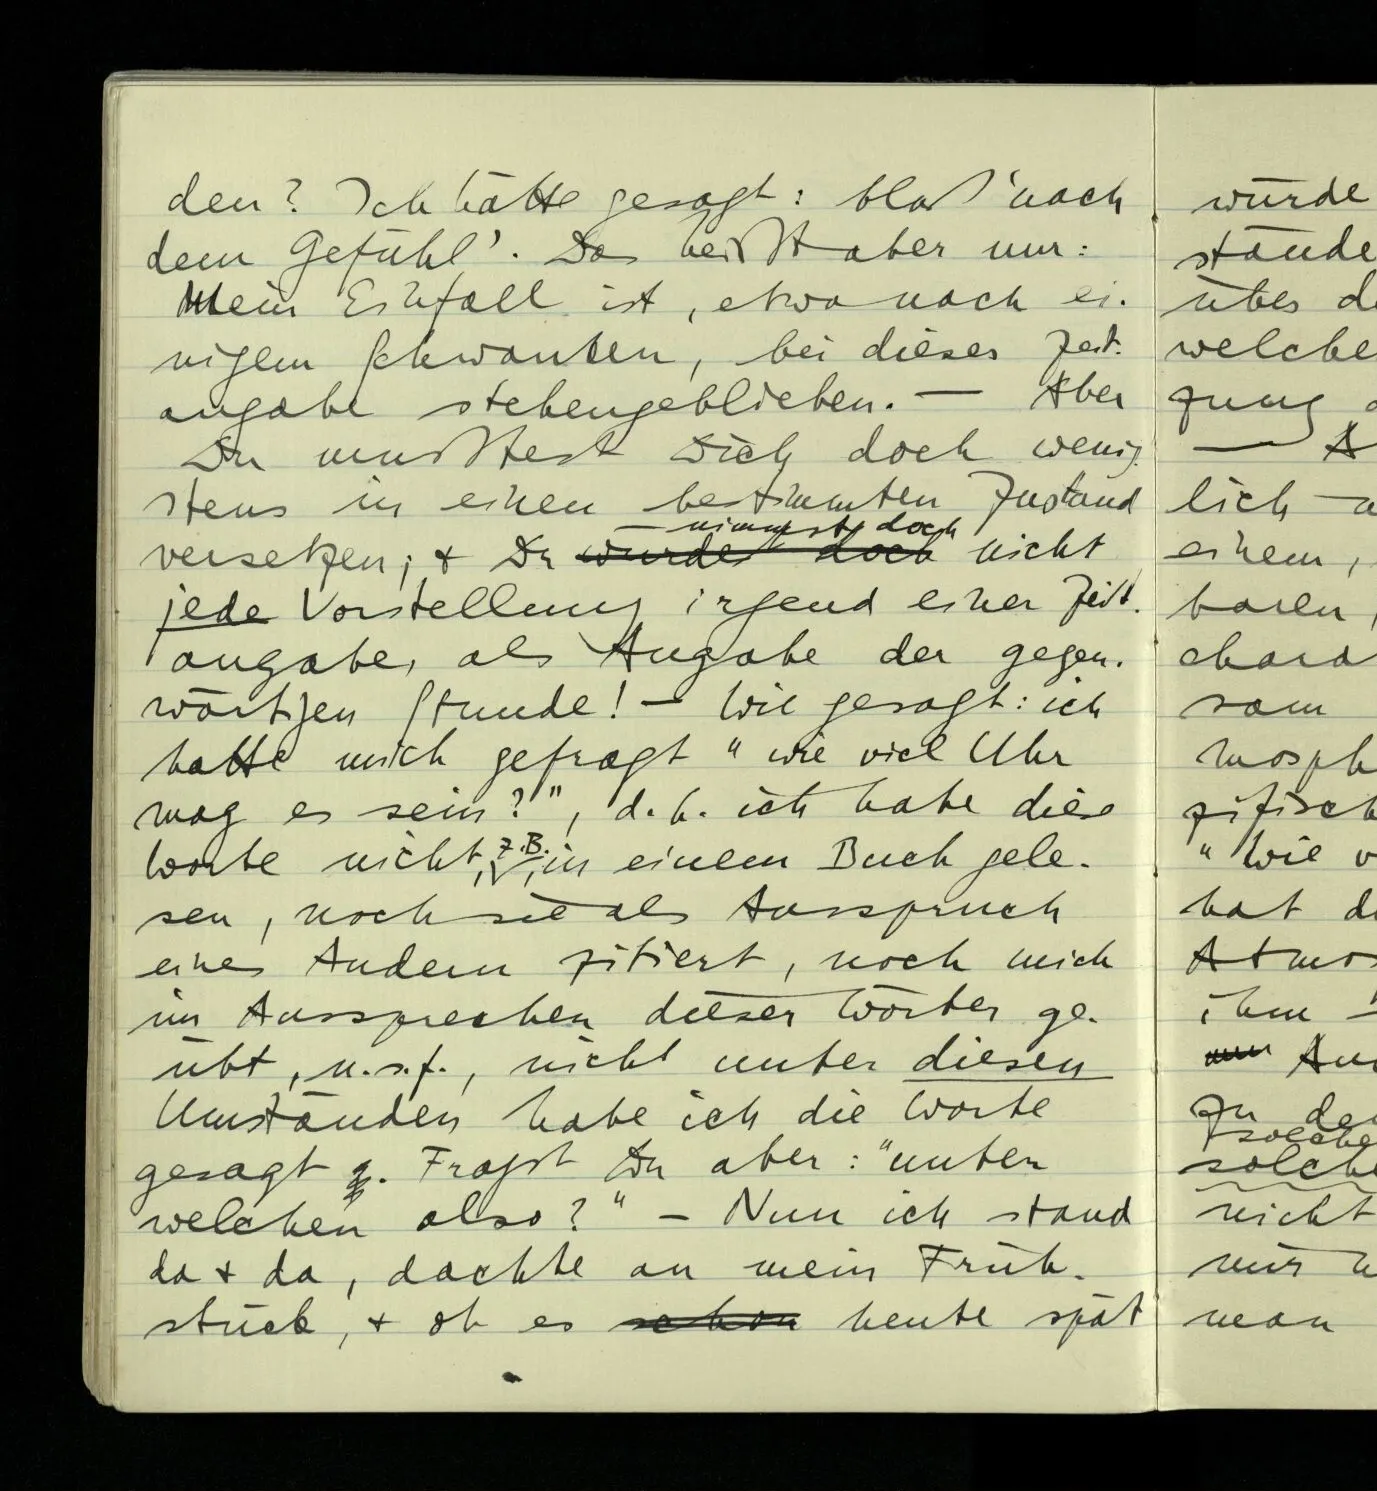 den? Ich hätte gesagt: bloß 'nach
dem Gefühl'. Das heißt aber nur:
Mein Einfall ist, etwa nach ei-
nigem Schwanken, bei dieser Zeit-
angabe stehengeblieben. — Aber
Du mußtest Dich doch wenig-
stens in einen bestimmten Zustand
— nimmst doch
versetzen; & Du wurdest doch nicht
jede Vorstellung irgend einer Zeit-
angabe, als Angabe der gegen-
wärtigen Stunde! — Wie gesagt: ich
hatte mich gefragt "wie viel Uhr
mag es sein?", d.h. ich habe diese
z.B.
Worte nicht, in einem Buch gele-
sen, noch sie als Ausspruch
eines Andern zitiert, noch mich
im Aussprechen dieser Wörter ge-
übt, u.s.f., nicht unter diesen
Umständen habe ich die Worte
gesagt. Fragst Du aber: "unter
welchen also?" — Nun ich stand
da & da, dachte an mein Früh-
stück, & ob es schon heute spät
würde
stände
über de
welche
zung
— A
lich —
einem,
baren,
chara
sam
mosph
zifisch
"Wie v
hat di
Atmos
ihm —
zu de
solche
solche
nicht
mir
man